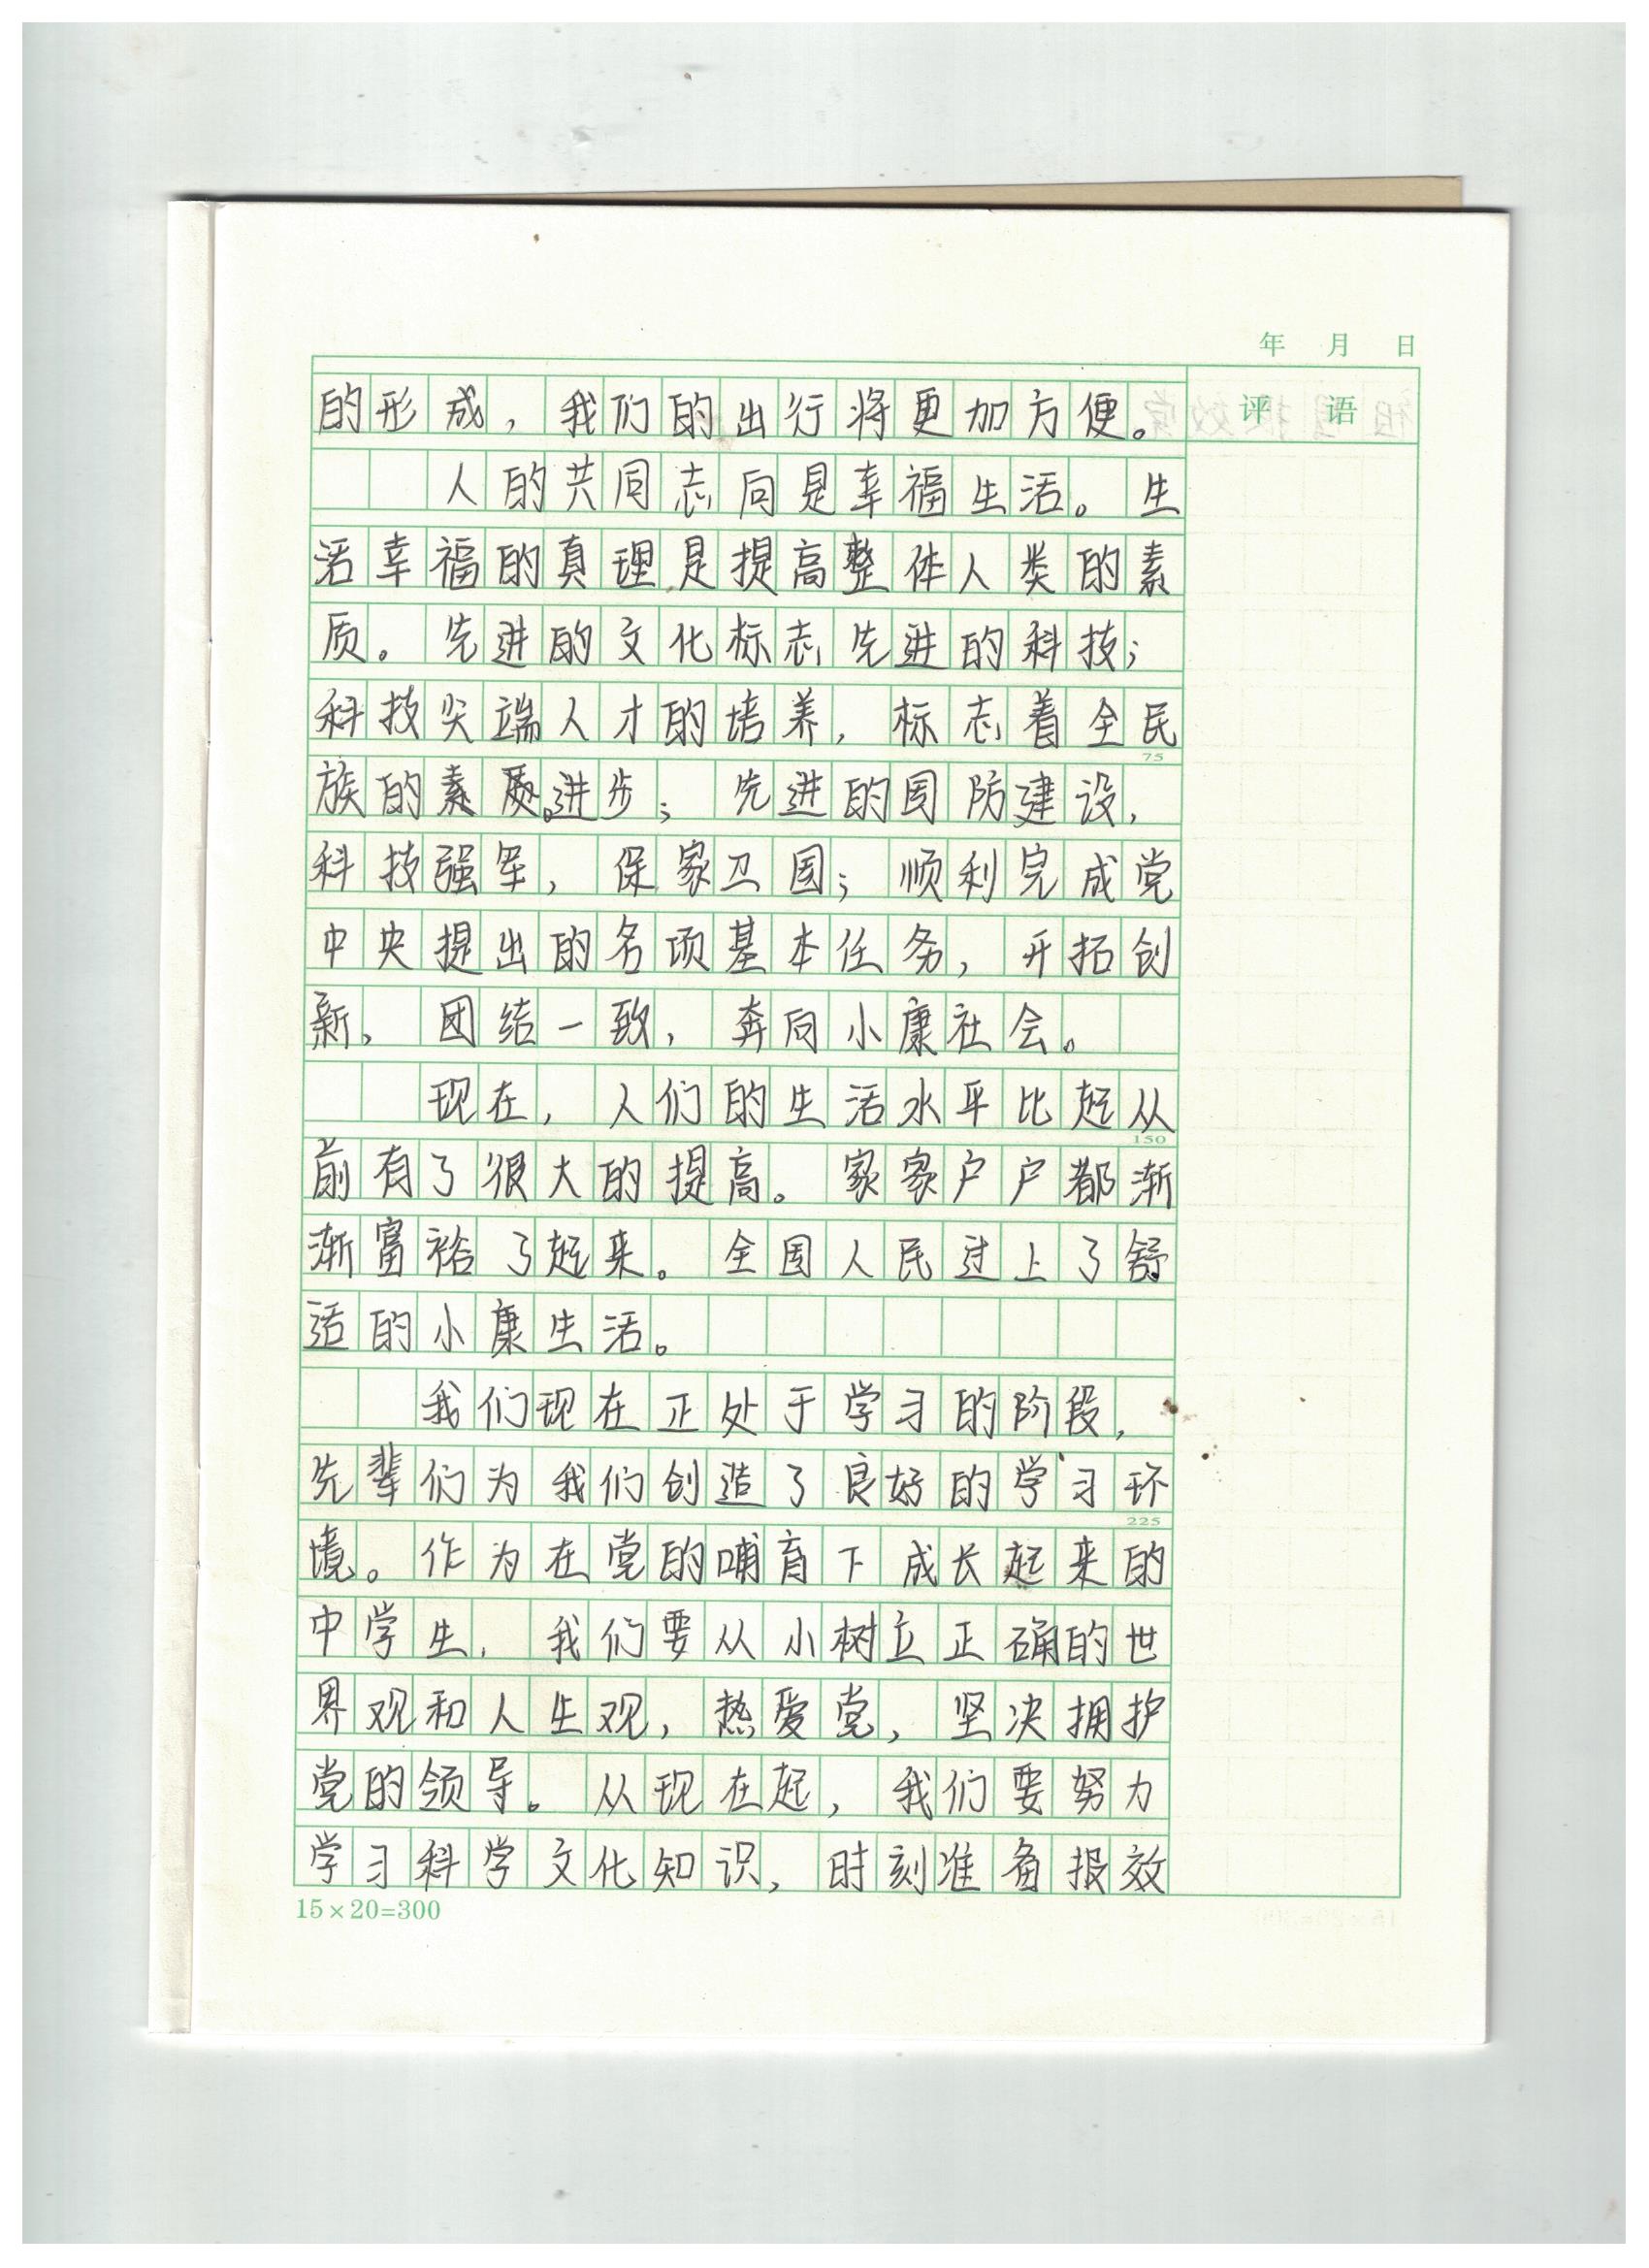 年 月 日
评 语
的形成，我们的出行将更加方便。
人的共同志向是幸福生活。生
活幸福的真理是提高整体人类的素
质。先进的文化标志先进的科技；
科技尖端人才的培养，标志着全民
75
族的素质进步；先进的国防建设，
科技强军，保家卫国；顺利完成党
中央提出的各项基本任务，开拓创
新，团结一致，奔向小康社会。
现在，人们的生活水平比起从
150
前有了很大的提高。家家户户都渐
渐富裕了起来。全国人民过上了舒
适的小康生活。
我们现在正处于学习的阶段，
先辈们为我们创造了良好的学习环
225
境。作为在党的哺育下成长起来的
中学生，我们要从小树立正确的世
界观和人生观，热爱党，坚决拥护
党的领导。从现在起，我们要努力
学习科学文化知识，时刻准备报效
15×20=300